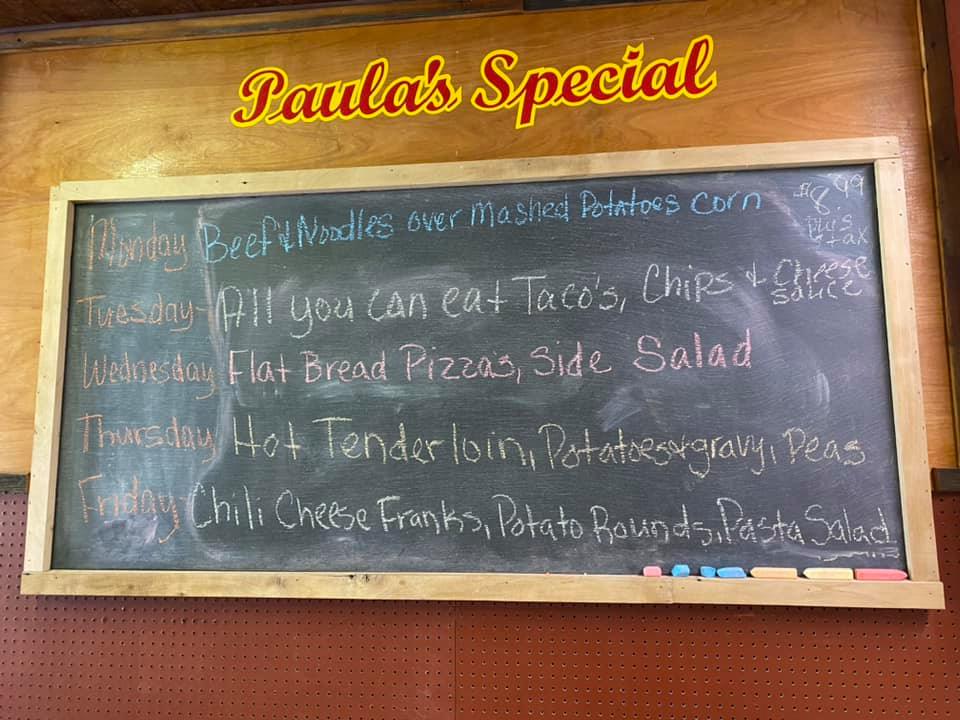 Paula's Special
Monday Beef & Noodles over Mashed Potatoes corn
$8.99
plus
tax
Tuesday- All you can eat Taco's, Chips & Cheese
sauce
Wednesday Flat Bread Pizza's, Side Salad
Thursday Hot Tenderloin, Potatoes & gravy, Peas
Friday- Chili Cheese Franks, Potato Rounds, Pasta Salad